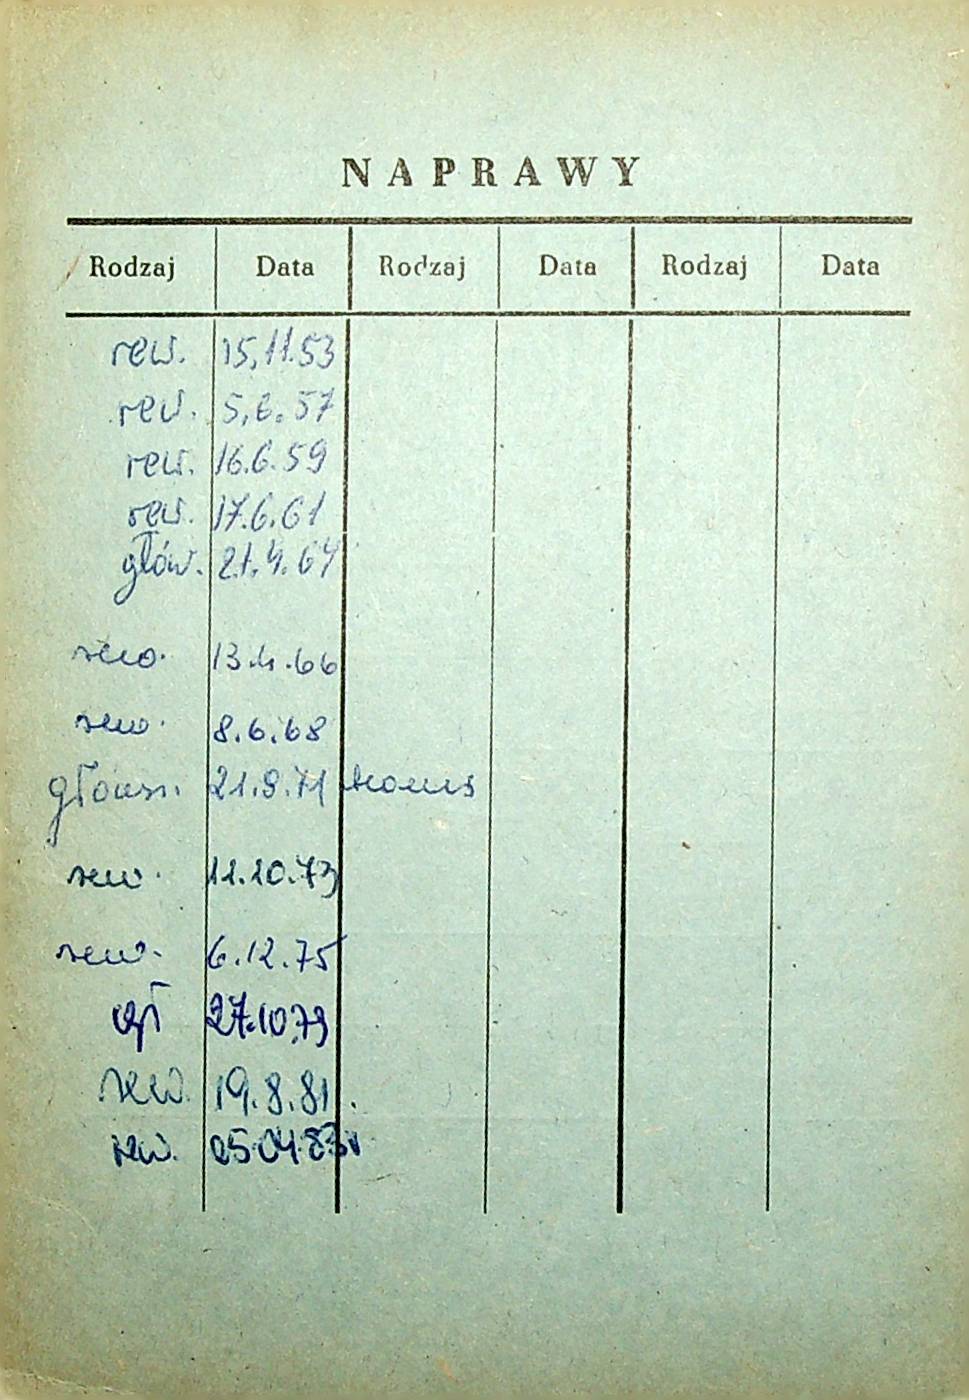 NAPRAWY
Rodzaj Data Rodzaj Data Rodzaj Data
rew. 15.11.53
rew. 5.6.57
rew. 16.6.59
rew. 17.6.61
głów. 21.4.64
rew. 13.4.66
rew. 8.6.68
główn. 21.8.71
rew. 11.10.73
rew. 6.12.75
gł 27.10.79
rew. 19.8.81.
rew. 25.04.83r